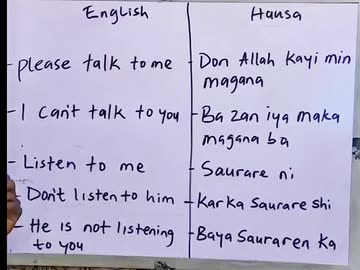 English
Hausa
- please talk to me
- Don Allah kayi min
magana
- I can't talk to you
- Ba zan iya maka
magana ba
- Listen to me
- Saurare ni
- Don't listen to him
- Kar Ka Saurare shi
- He is not listening
to you
- Baya Sauraren Ka